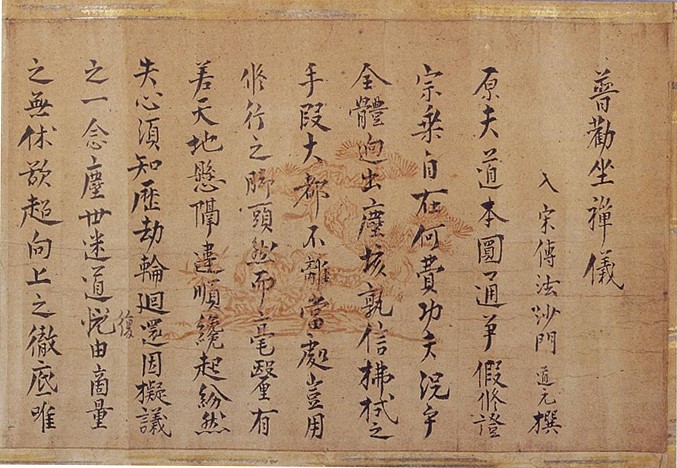 普勸坐禪儀
入宋傳法沙門 道元撰
原夫道本圓通爭假修證
宗乘自在何費功夫況乎
全體迥出塵埃孰信拂拭之
手段大都不離當處豈用
修行之脚頭然而毫釐有
差天地懸隔違順纔起紛然
失心須知歷劫輪迴還因擬議
之一念塵世迷道復由商量
之無休欲超向上之徹底唯